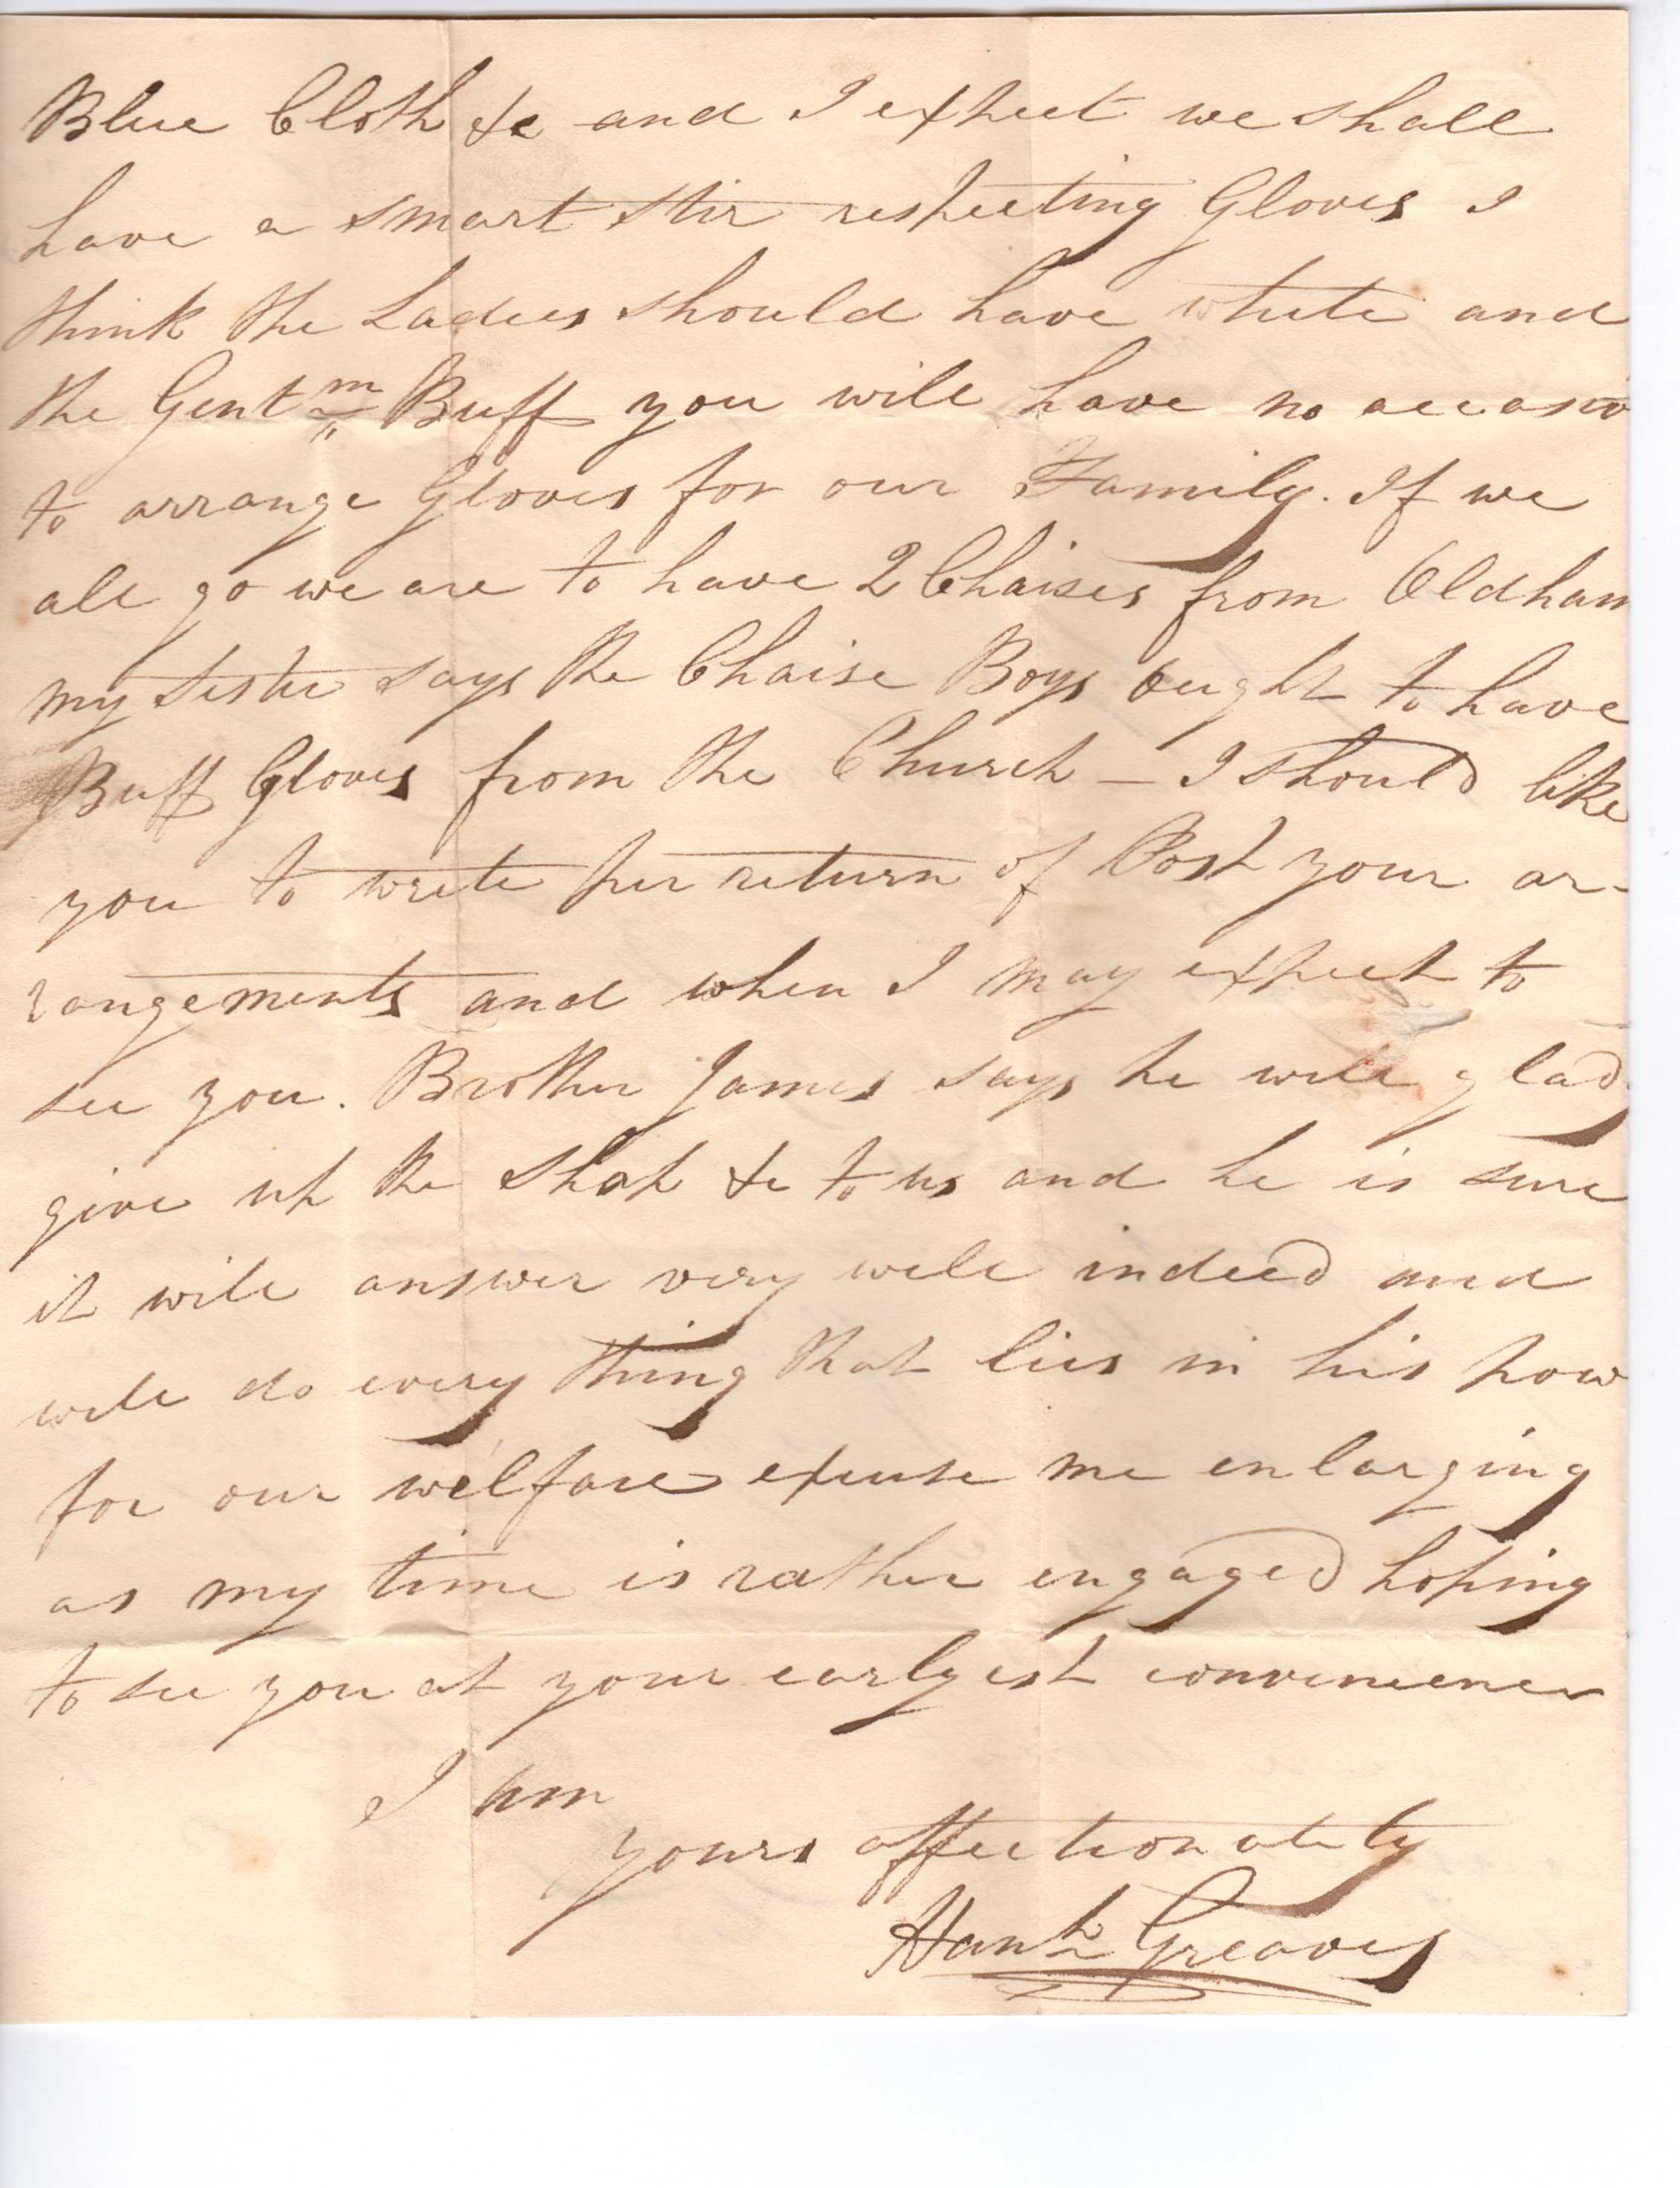 Blue Cloth &c and I expect we shall
have a smart stir respecting Gloves I
think the Ladies should have white and
the Gentm Buff you will have no occasio
to arrange Gloves for our Family. If we
all go we are to have 2 Chaises from Oldham
my sister says the Chaise Boys ought to have
Buff Gloves from the Church – I should like
you to write per return of Post your ar-
rangements and when I may expect to
see you. Brother James says he will glad
give up the Shop &c to us and he is sure
it will answer very well indeed and
will do every thing that lies in his pow
for our welfare excuse me enlarging
as my time is rather engaged hoping
to see you at your earlyest convenience
I am
yours affectionately
Hanh Greaves